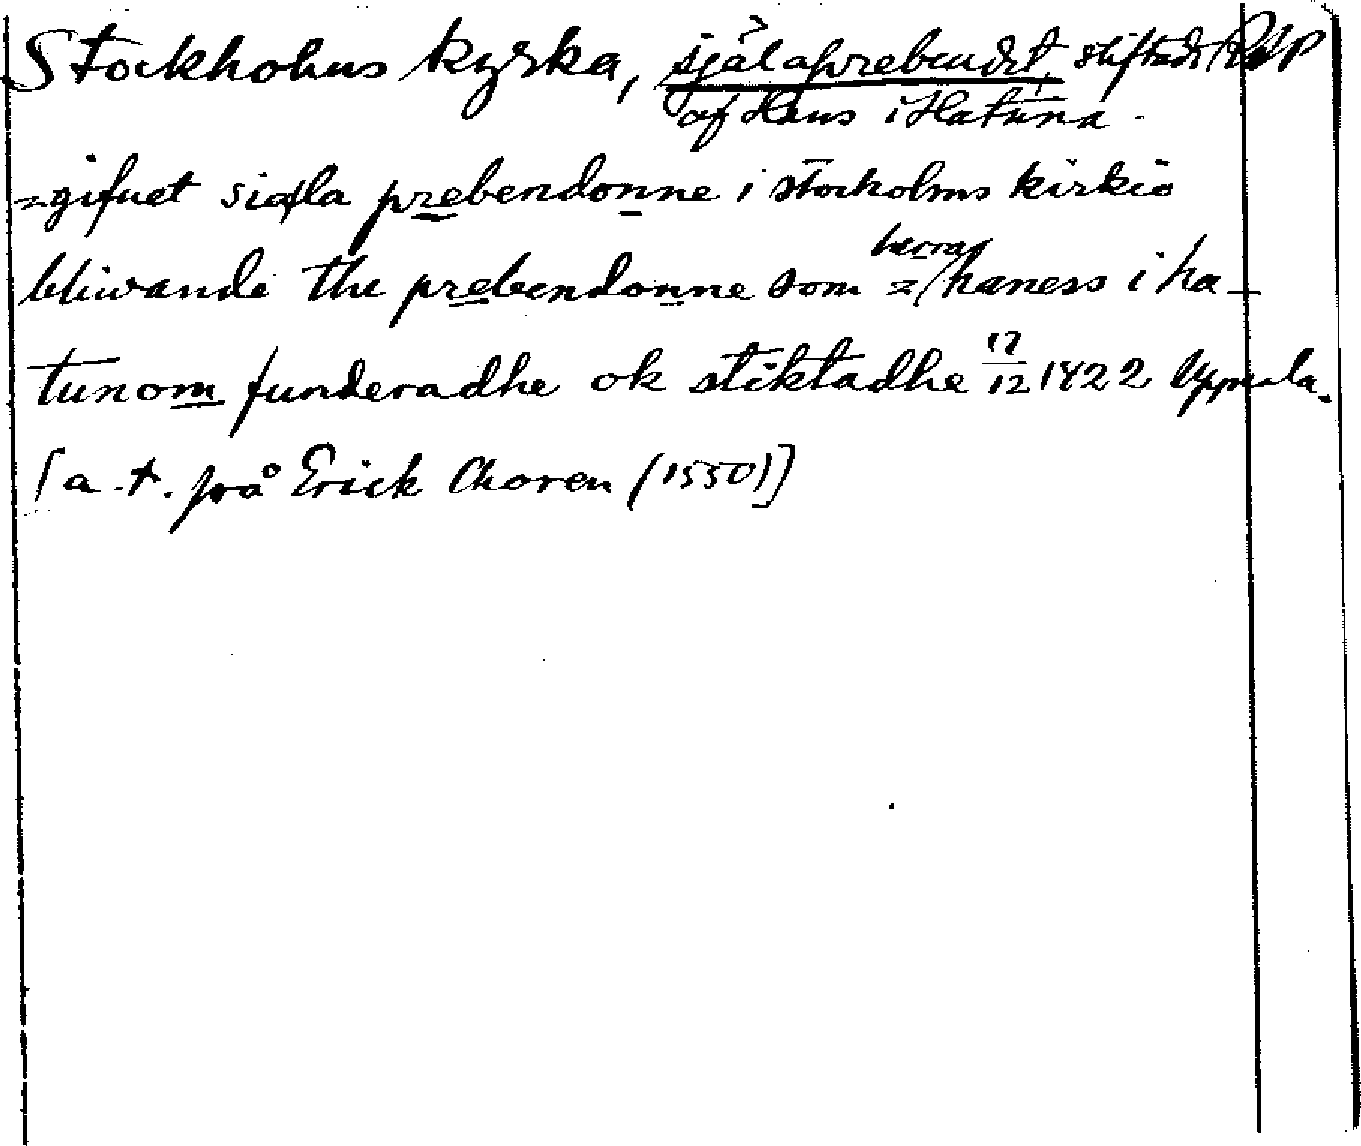 Stockholms kyrka, själaprebendet, stiftadt
af Hans i Hatuna.
=gifuet siæla prebendonne i stockolms kirkio
bliwande the prebendonne som =/haness i ha-
herra
tunom funderadhe ok stiktadhe 17/12 1422 Uppsala.
[a.t. på Erick Choren (1550)]